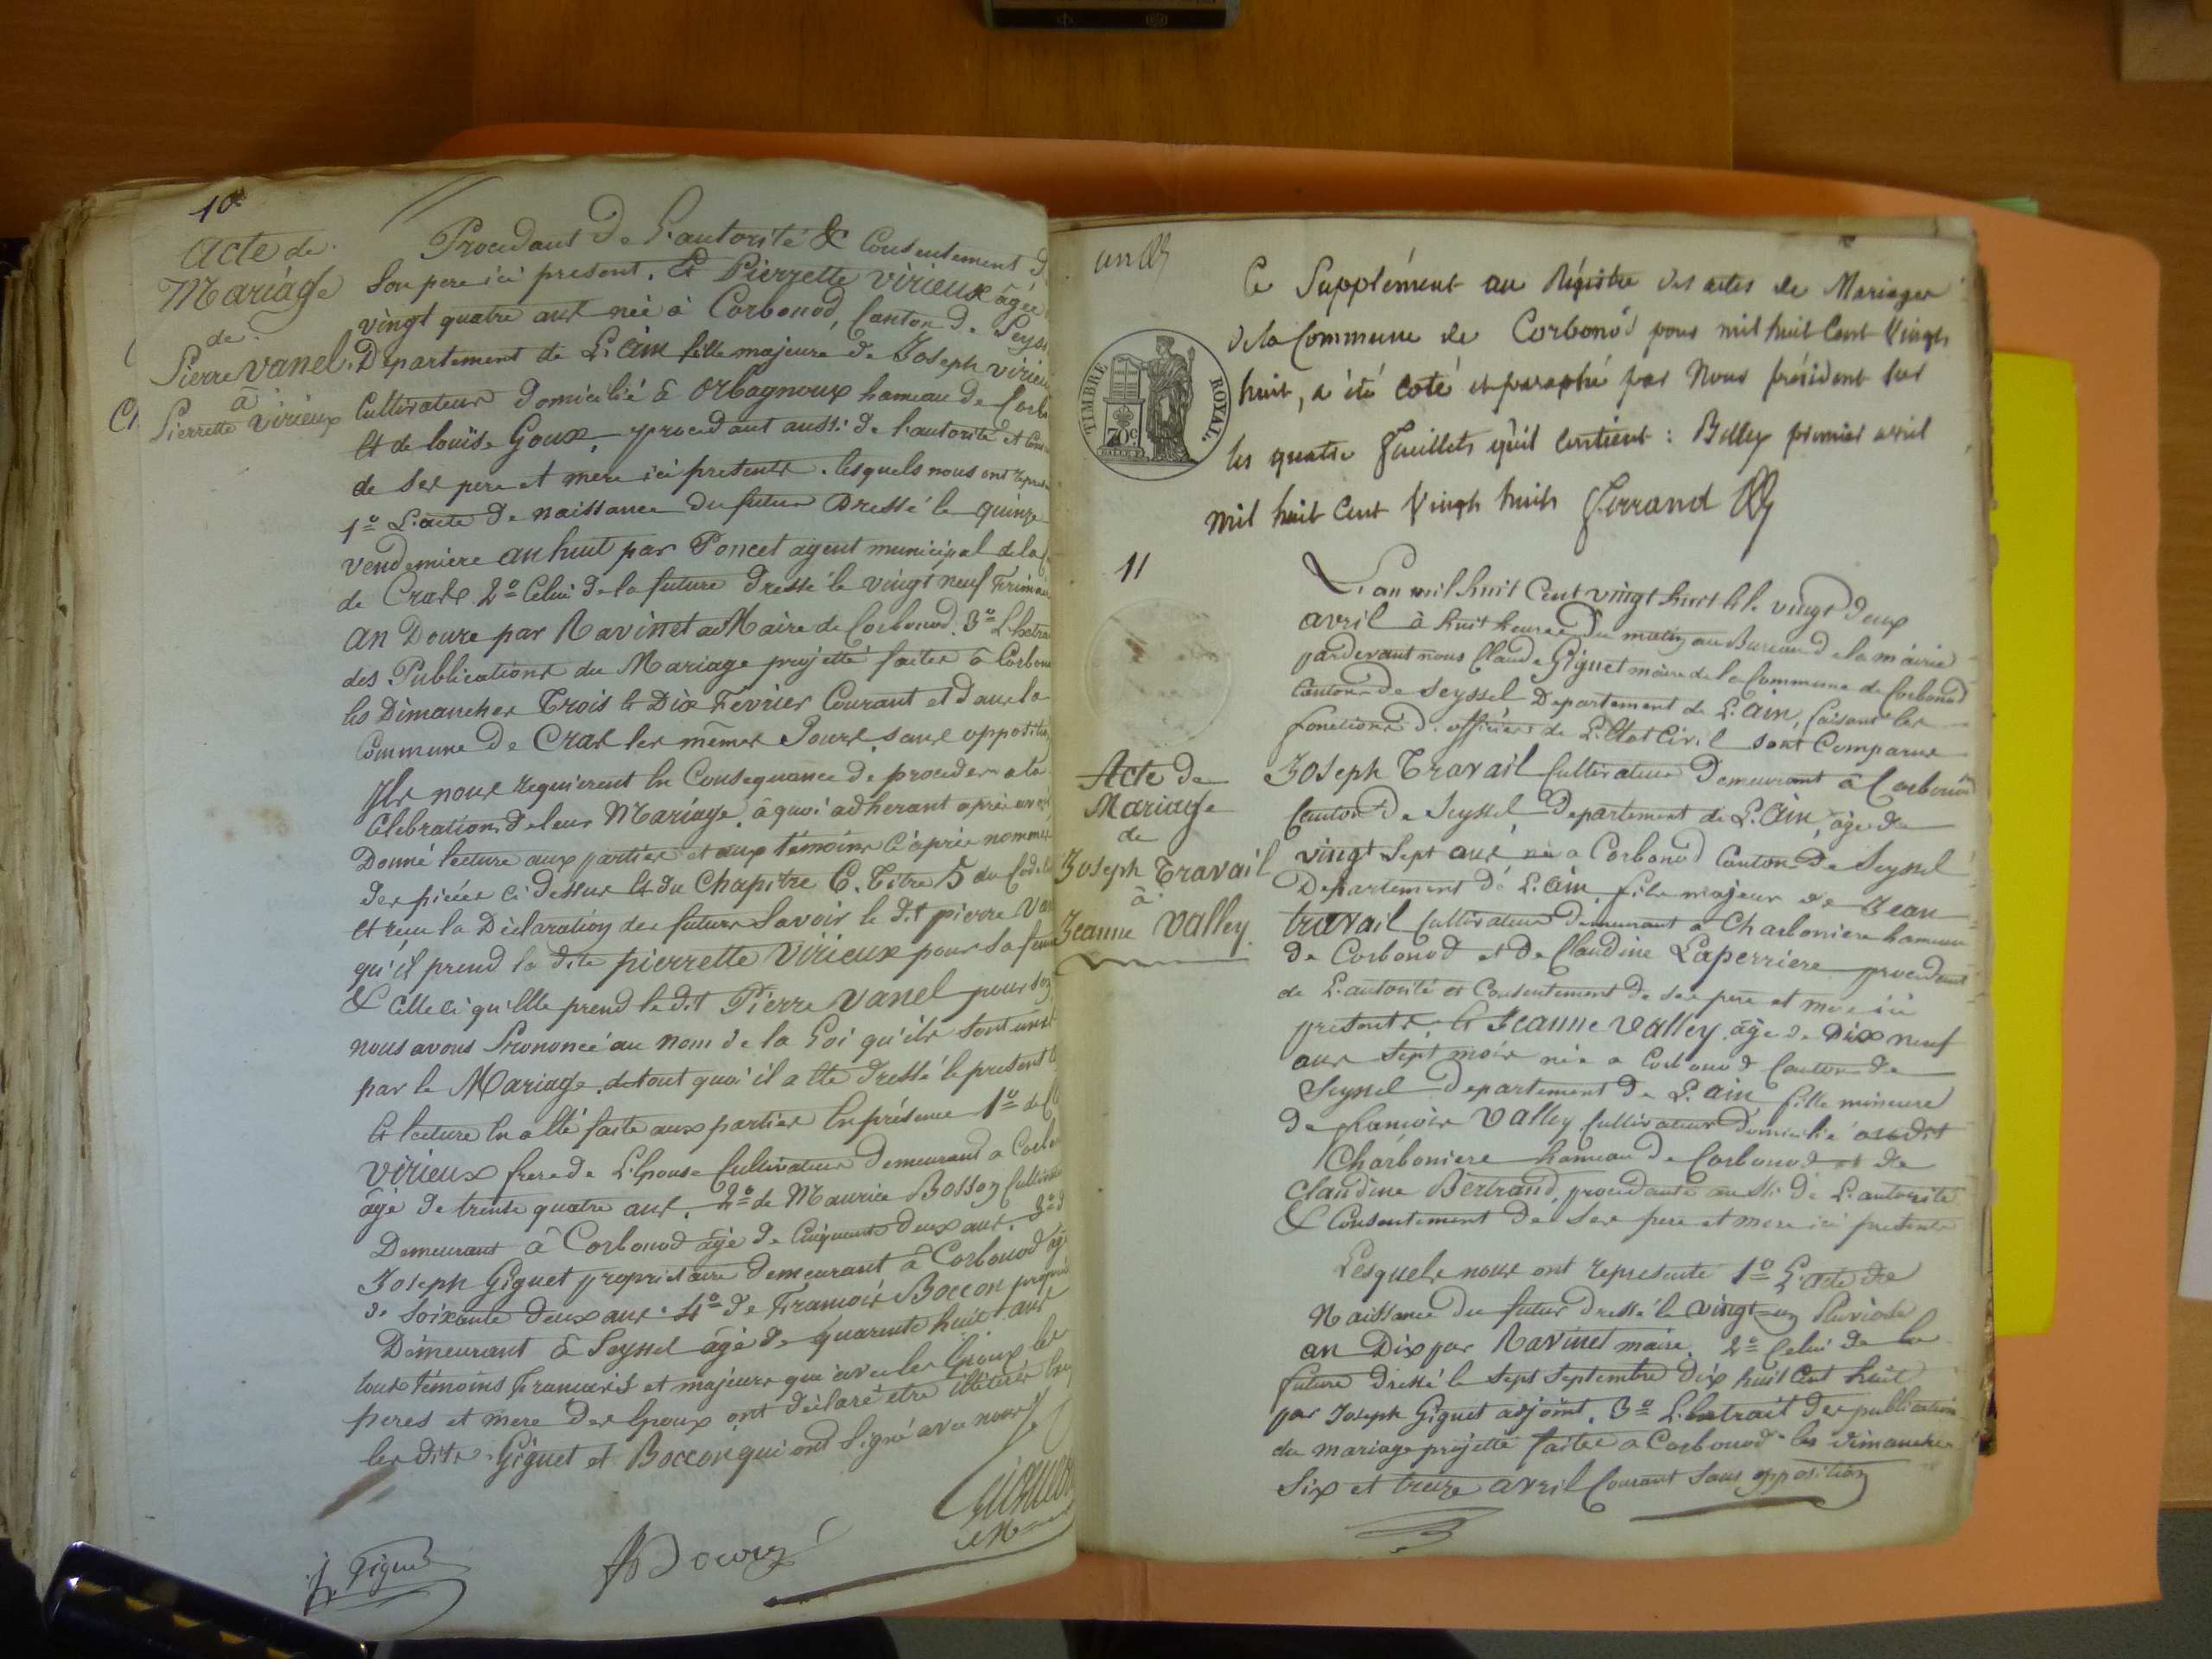 10e
Acte de
Mariage
de
Pierre Vanel
à
Pierrette Virieux
Procedant de l'autorité & Consentement d
Son pere ici present. Et Pierrette Virieux âgée
vingt quatre ans née à Corbonod, Canton de Seyss
Departement de L'ain fille majeure de Joseph Virieu
Cultivateur domicilié à Orbagnoux hameau de Corb
Et de louïse Goux, procedant aussi de l'autorité et Con
de ses pere et mere ici presents. lesquels nous ont repres
1o L'acte de naissance du futur Dressé le quinze
vendemiere an huit par Poncet agent municipal de la
de Craz 2o Celui de la future dressé le vingt neuf Frima
an Douze par Ravinet Maire de Corbonod. 3o L'extra
des Publications du Mariage projetté faites à Corbon
les Dimanches Trois et Dix Fevrier Courant et dans la
Commune de Craz les mêmes Jours, sans opposition
Ils nous requierent En Consequance de proceder a la
Celebration de leur Mariage. à quoi adherant après avoir
Donné lecture aux parties et aux témoins ci après nommés
des pièces ci dessus Et du Chapitre 6. titre 5 du Code
Et reçu la Déclaration des futurs Savoir le dit pierre Van
qu'il prend la dite pierrette Virieux pour Sa femme
& Celle ci qu'Elle prend le dit Pierre Vanel pour son
nous avons Prononcé au nom de la Loi qu'ils sont unis
par le Mariage. de tout quoi il a été dressé le present
Et lecture En a été faite aux parties En présence 1o de
Virieux frere de L'Epouse Cultivateur Demeurant a Corb
âgé de trente quatre ans. 2o de Maurice Bosson Cultiv
Demeurant à Corbonod âgé de Cinquante deux ans. 3o d
Joseph Giguet propriétaire demeurant à Corbonod âg
de Soixante deux ans. 4o de François Boccon propri
Demeurant à Seyssel âgé de quarente huit ans
tous témoins Francais et majeurs qui avec les Epoux les
peres et mere des Epoux ont déclaré être illitérés
les dits Giguet et Boccon qui ont Signé avec nous
J. Giguet
un
Ce Supplément au Régistre des actes de Mariages
de la Commune de Corbonod pour mil huit Cent Vingt
huit, a été coté et paraphé par Nous président sur
les quatre feuillets qu'il contient : Belley premier avril
mil huit Cent Vingt huit Ferrand
TIMBRE ROYAL.
70c
11
Acte de
Mariage
de
Joseph Travail
à
Jeanne Valley
L'an mil huit Cent vingt huit & le vingt deux
avril à huit heures du matin au Bureau de la mairie
pardevant nous Claude Giguet maire de la Commune de Corbonod
Canton de Seyssel Departement de L'Ain, faisant les
fonctions d'officier de L'Etat Civil sont Comparus
Joseph Travail Cultivateur Demeurant à Corbonod
Canton de Seyssel Departement de L'Ain, âgé de
vingt Sept ans, né a Corbonod Canton de Seyssel
Departement de L'ain, fils majeur de Jean
travail Cultivateur demeurant a Charboniere hameau
de Corbonod et de Claudine Laperriere procedant
de L'autorité et Consentement de ses pere et mere ici
presents. Et Jeanne Valley. âge de Dix neuf
ans Sept mois née a Corbonod Canton de
Seyssel Departement de L'ain fille mineure
de francois Valley Cultivateur Domicilié audit
Charboniere hameau de Corbonod et de
Claudine Bertrand, procedante aussi de L'autorité
& Consentement de Ses pere et mere ici presents
Lesquels nous ont représenté 1o L'acte de
Naissance du futur dressé le vingt-un Pluviose
an Dix par Ravinet maire. 2o Celui de la
future dressé le Sept Septembre Dix huit Cent huit
par Joseph Giguet adjoint. 3o L'Extrait des publications
du mariage projetté faites a Corbonod les dimanches
Six et treize avril Courant Sans opposition